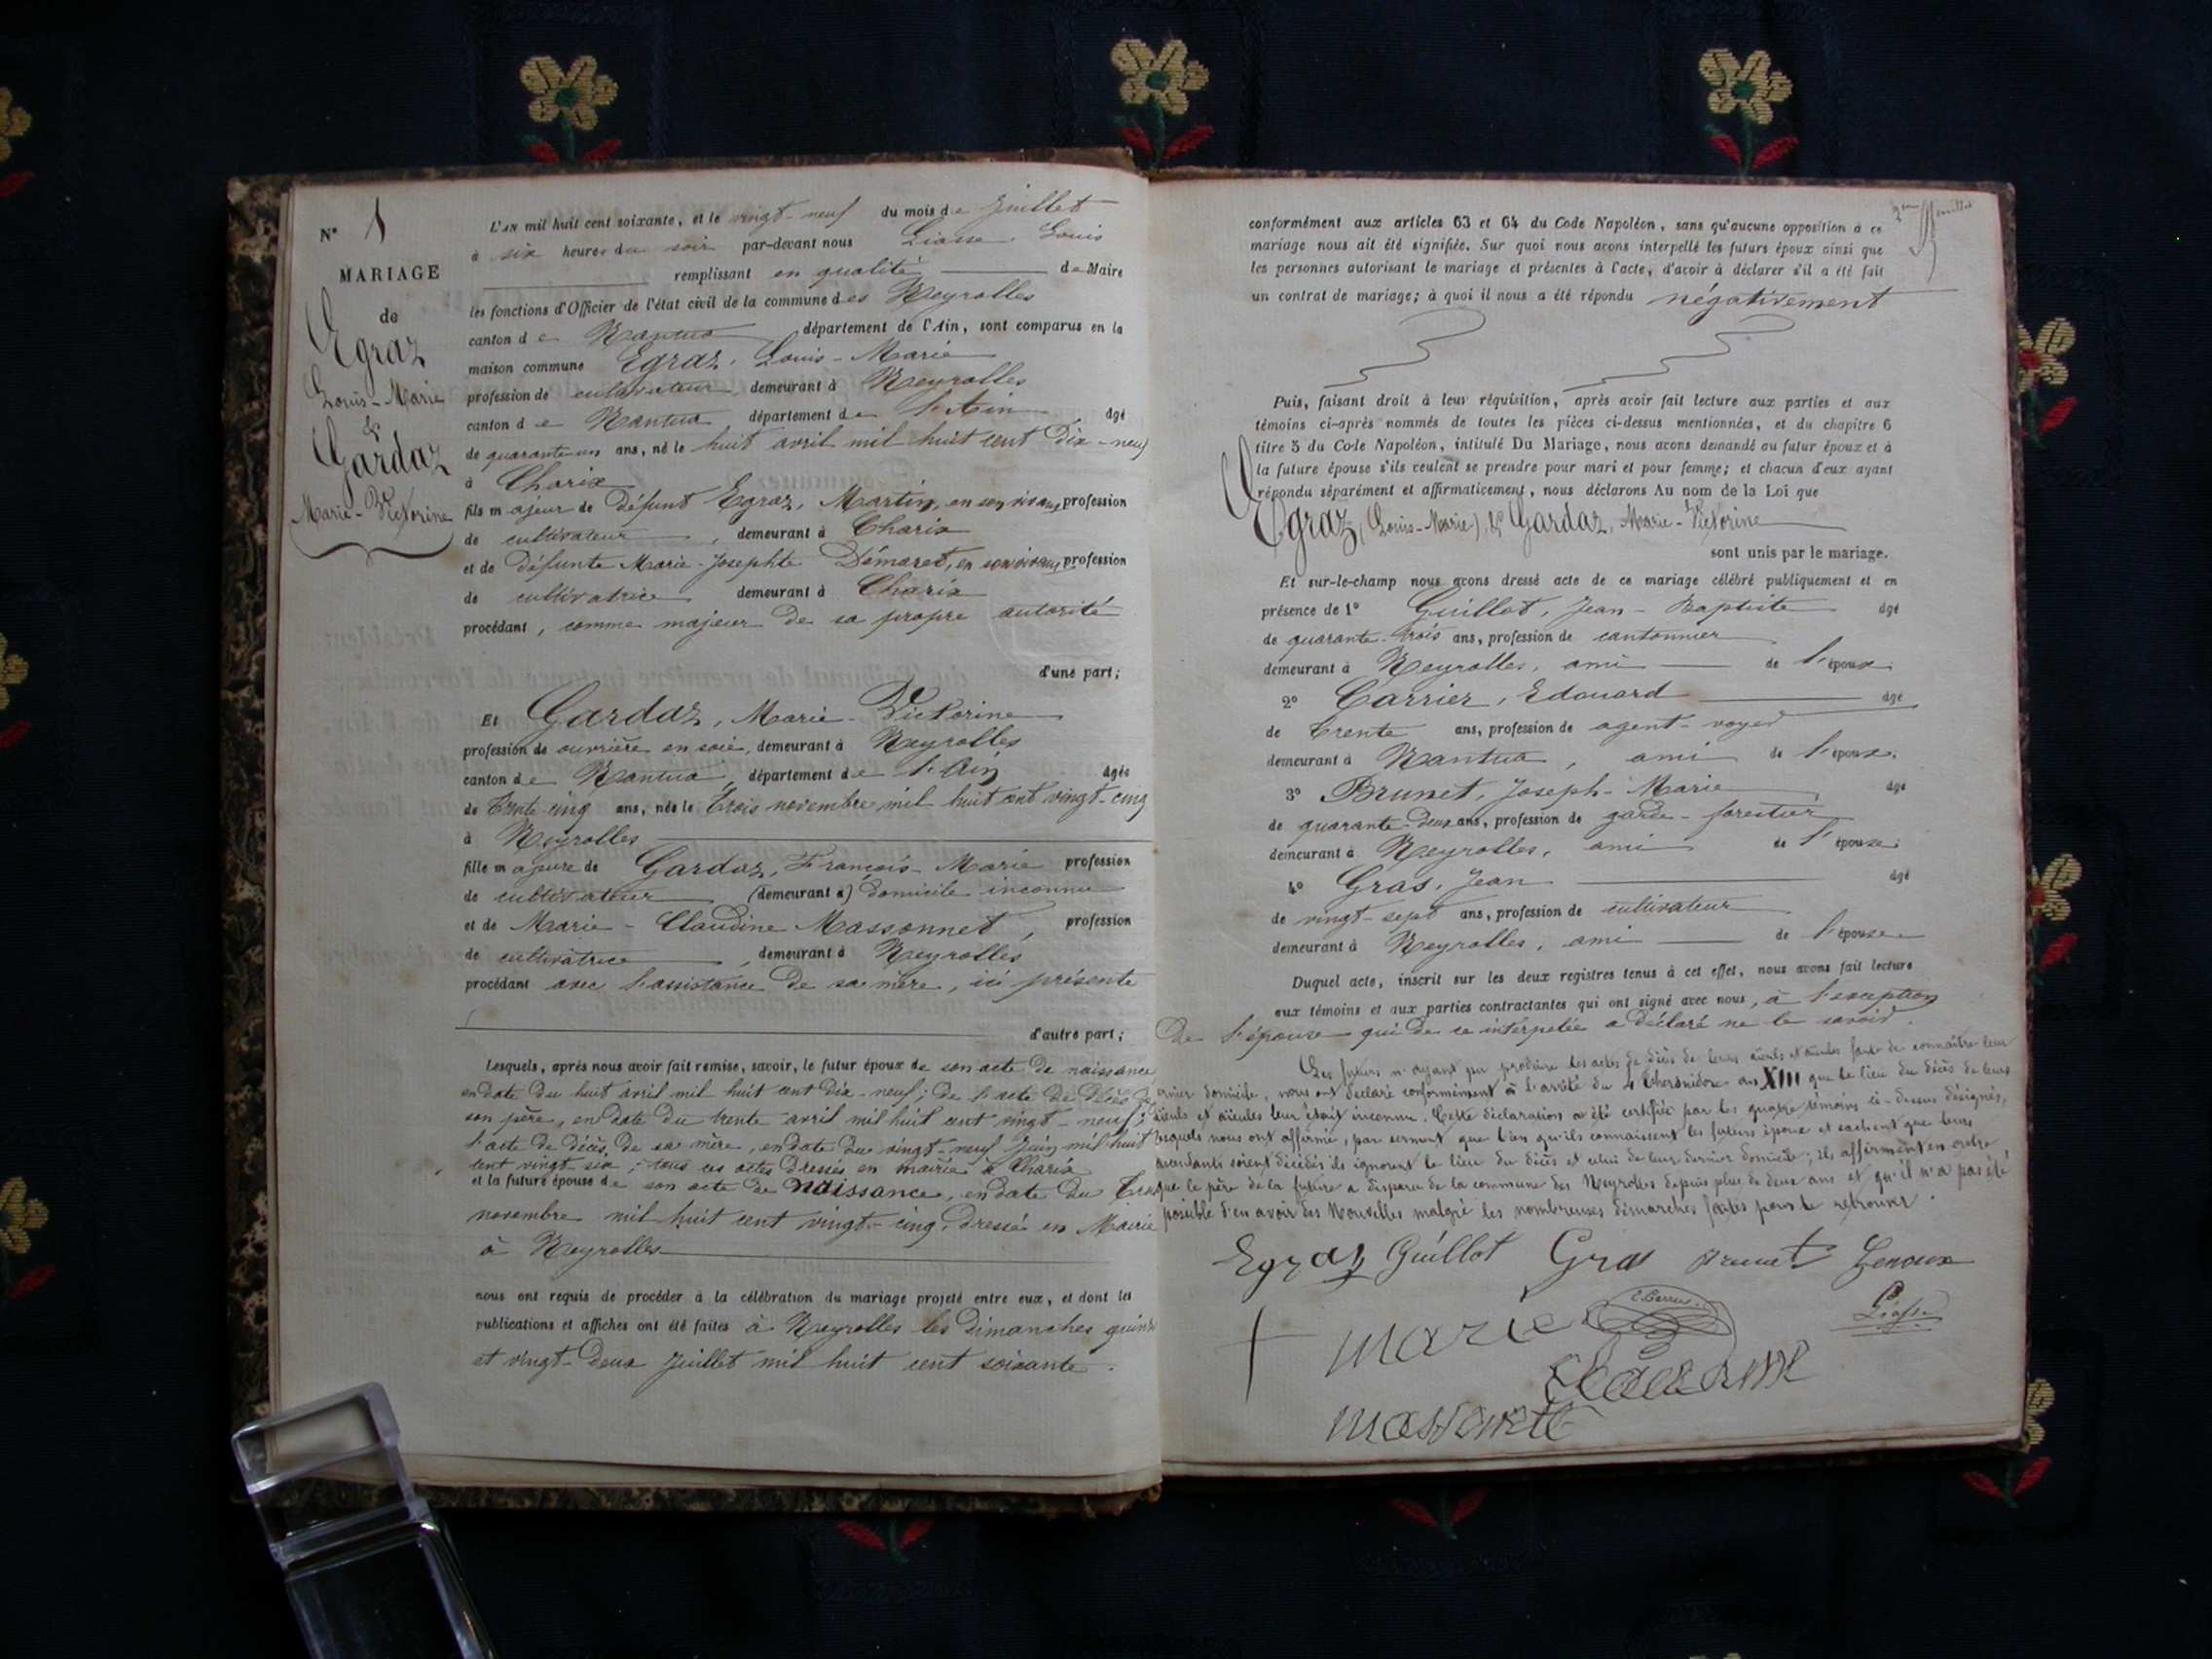 N° 1
MARIAGE
de
Egraz
Louis-Marie
&
Gardaz
Marie-Victorine
L'AN mil huit cent soixante, et le vingt-neuf du mois de Juillet
à six heures du soir par-devant nous Liasse, Louis
remplissant en qualité de Maire
les fonctions d'Officier de l'état civil de la commune des Neyrolles
canton de Nantua, département de l'Ain, sont comparus en la
maison commune Egraz, Louis-Marie
profession de cultivateur demeurant à Neyrolles
canton de Nantua département de l'Ain âgé
de quarante-un ans, né le huit avril mil huit cent dix-neuf
à Charix
fils majeur de défunt Egraz, Martin, en son vivant profession
de cultivateur, demeurant à Charix
et de défunte Marie-Josephte Démaret, en son vivant profession
de cultivatrice demeurant à Charix
procédant, comme majeur de sa propre autorité
d'une part;
Et Gardaz, Marie-Victorine
profession de ouvrière en soie, demeurant à Neyrolles
canton de Nantua, département de l'Ain âgée
de trente cinq ans, née le trois novembre mil huit cent vingt-cinq
à Neyrolles
fille majeure de Gardaz, François-Marie profession
de cultivateur (demeurant à) domicile inconnu
et de Marie-Claudine Massonnet, profession
de cultivatrice, demeurant à Neyrolles
procédant avec l'assistance de sa mère, ici présente
d'autre part;
Lesquels, après nous avoir fait remise, savoir, le futur époux de son acte de naissance
en date du huit avril mil huit cent dix-neuf; de l'acte de décès de
son père, en date du trente avril mil huit cent vingt-neuf;
l'acte de décès de sa mère, en date du vingt-neuf Juin mil huit
cent vingt six; tous ces actes dressés en mairie à Charix
et la future épouse de son acte de naissance, en date du trois
novembre mil huit cent vingt-cinq, dressé en Mairie
à Neyrolles
nous ont requis de procéder à la célébration du mariage projeté entre eux, et dont les
publications et affiches ont été faites à Neyrolles les dimanches quinze
et vingt-deux Juillet mil huit cent soixante.
conformément aux articles 63 et 64 du Code Napoléon, sans qu'aucune opposition à ce
mariage nous ait été signifiée. Sur quoi nous avons interpellé les futurs époux ainsi que
les personnes autorisant le mariage et présentes à l'acte, d'avoir à déclarer s'il a été fait
un contrat de mariage; à quoi il nous a été répondu négativement
Puis, faisant droit à leur réquisition, après avoir fait lecture aux parties et aux
témoins ci-après nommés de toutes les pièces ci-dessus mentionnées, et du chapitre 6
titre 5 du Code Napoléon, intitulé Du Mariage, nous avons demandé au futur époux et à
la future épouse s'ils veulent se prendre pour mari et pour femme; et chacun d'eux ayant
répondu séparément et affirmativement, nous déclarons Au nom de la Loi que
Egraz, (Louis-Marie), & Gardaz, Marie-Victorine
sont unis par le mariage.
Et sur-le-champ nous avons dressé acte de ce mariage célébré publiquement et en
présence de 1° Guillot, Jean-Baptiste âgé
de quarante-trois ans, profession de cantonnier
demeurant à Neyrolles, ami de l'époux.
2° Carrier, Edouard âgé
de trente ans, profession de agent-voyer
demeurant à Nantua, ami de l'époux.
3° Brunet, Joseph-Marie âgé
de quarante-deux ans, profession de garde-forestier
demeurant à Neyrolles, ami de l'épouse.
4° Gras, Jean âgé
de vingt-sept ans, profession de cultivateur
demeurant à Neyrolles, ami de l'épouse
Duquel acte, inscrit sur les deux registres tenus à cet effet, nous avons fait lecture
aux témoins et aux parties contractantes qui ont signé avec nous, à l'exception
de l'épouse qui de ce interpelée a déclaré ne le savoir.
Les futurs n'ayant pu produire les actes de décès de leurs aïeuls et aïeules faute de connaître leur
dernier domicile, nous ont déclaré conformément à l'arrêté du 4 thermidor an XIII que le lieu du décès de leurs
aïeuls et aïeules leur était inconnu. Cette déclaration a été certifiée par les quatre témoins ci-dessus désignés,
lesquels nous ont affirmé, par serment que bien qu'ils connaissent les futurs époux et sachent que leurs
ascendants soient décédés ils ignorent le lieu du décès et celui de leur dernier domicile; ils affirment en outre
que le père de la future a disparu de la commune des Neyrolles depuis plus de deux ans et qu'il n'a pas été
possible d'en avoir des Nouvelles malgré les nombreuses démarches faites pour le retrouver.
Egraz Guillot Gras Brunet
Liasse
marie
massonette